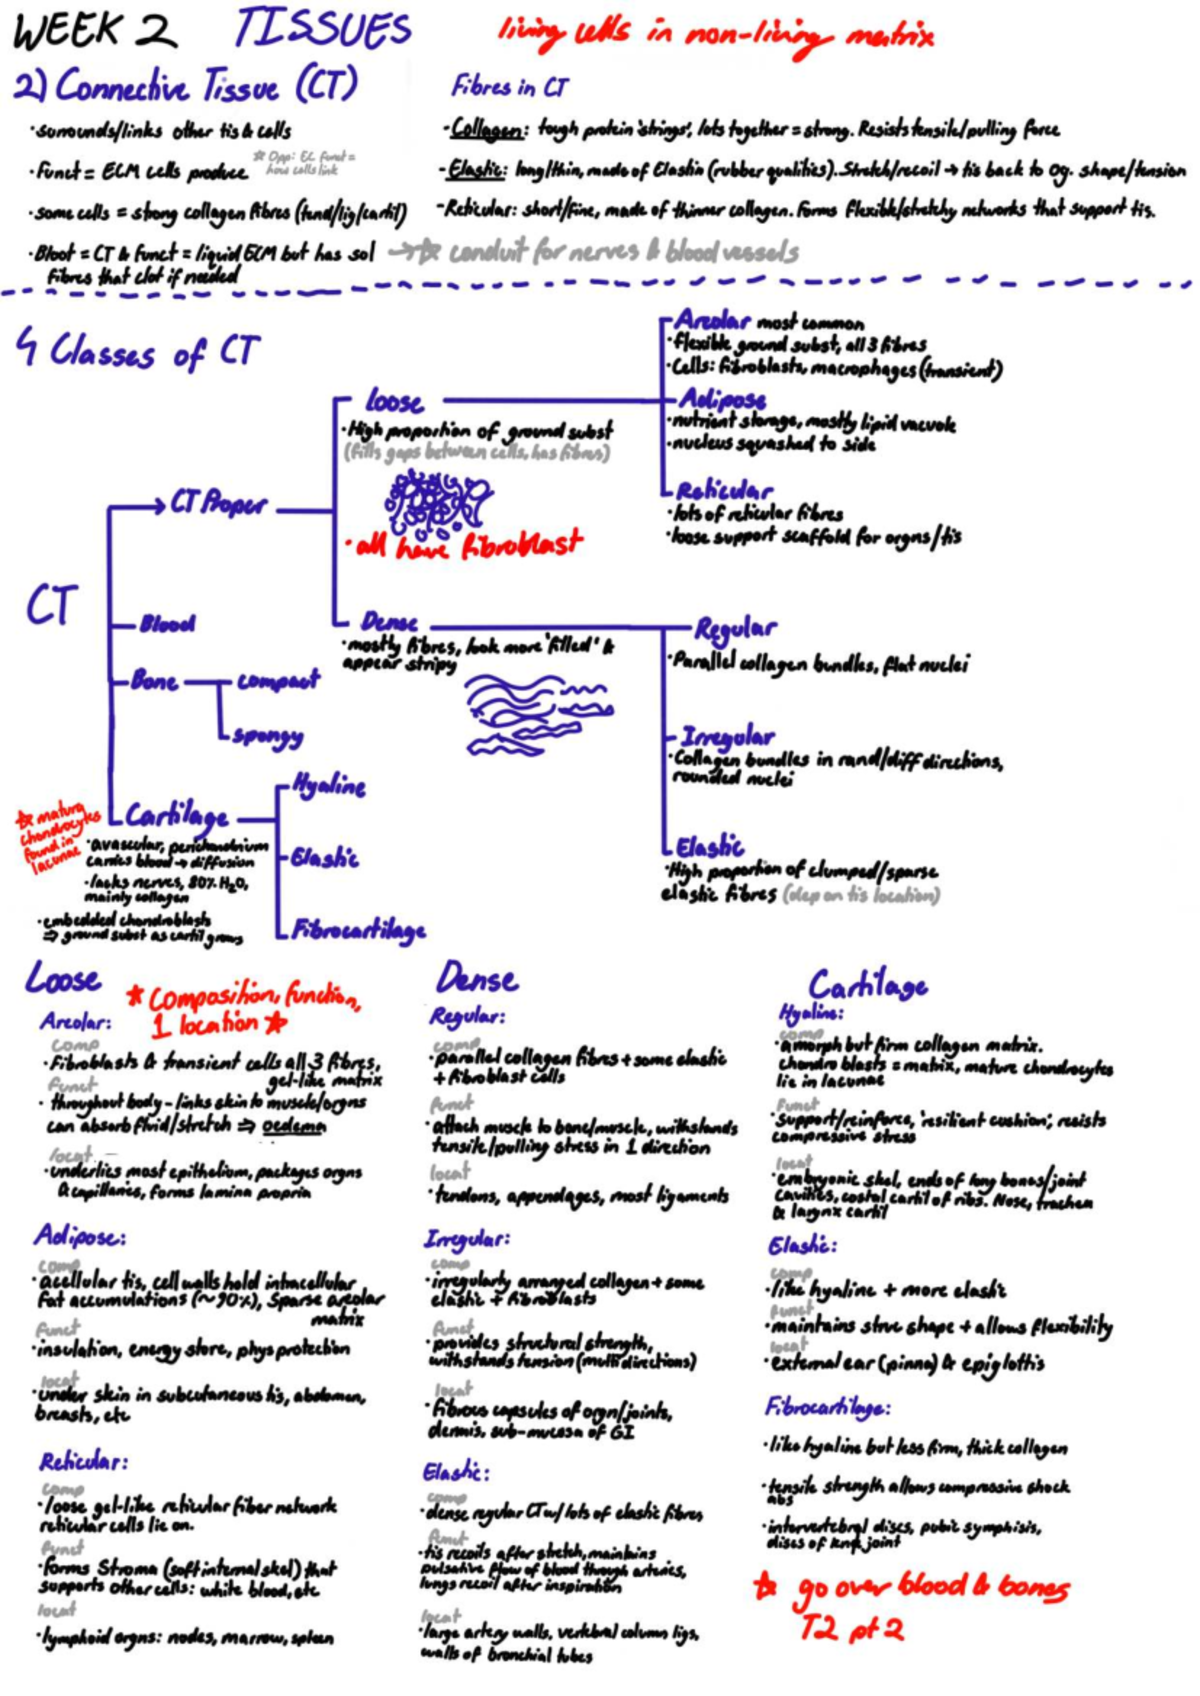 WEEK 2 TISSUES
living cells in non-living matrix
2) Connective Tissue (CT)
·surrounds/links other tis & cells
·Funct = ECM cells produce
☆ Opp: EC funct =
how cells link
·some cells = strong collagen fibres (tend/lig/cartil)
·Bloot = CT & funct = liquid ECM but has sol
fibres that clot if needed
→☆ conduit for nerves & blood vessels
Fibres in CT
-Collagen: tough protein 'strings', lots together = strong. Resists tensile/pulling force
-Elastic: long/thin, made of Elastin (rubber qualities). Stretch/recoil → tis back to og. shape/tension
-Reticular: short/fine, made of thinner collagen. Forms flexible/stretchy networks that support tis.
4 Classes of CT
CT
CT Proper
Loose
·High proportion of ground subst
(fills gaps between cells, has fibres)
·all have fibroblast
Areolar most common
·flexible ground subst, all 3 fibres
·Cells: fibroblasts, macrophages (transient)
Adipose
·nutrient storage, mostly lipid vacuole
·nucleus squashed to side
Reticular
·lots of reticular fibres
·loose support scaffold for orgns/tis
Dense
·mostly fibres, look more 'filled' &
appear stripy
Regular
·Parallel collagen bundles, flat nuclei
Irregular
·Collagen bundles in rand/diff directions,
rounded nuclei
Elastic
·High proportion of clumped/sparse
elastic fibres (dep on tis location)
Blood
Bone
compact
spongy
Cartilage
☆ mature
chondrocytes
found in
lacunae
·avascular, perichondrium
carries blood → diffusion
·lacks nerves, 80% H₂O,
mainly collagen
·embedded chondroblasts
⇒ ground subst as cartil grows
Hyaline
Elastic
Fibrocartilage
Loose
☆ Composition, function,
1 location ☆
Areolar:
comp
·Fibroblasts & transient cells all 3 fibres,
gel-like matrix
funct
·throughout body - links skin to muscle/orgns
can absorb fluid/stretch ⇒ oedema
locat
·underlies most epithelium, packages orgns
& capillaries, forms lamina propria
Adipose:
comp
·acellular tis, cell walls hold intracellular
fat accumulations (~90%), Sparse areolar
matrix
funct
·insulation, energy store, phys protection
locat
·under skin in subcutaneous tis, abdomen,
breasts, etc
Reticular:
comp
·loose gel-like reticular fiber network
reticular cells lie on.
funct
·forms Stroma (soft internal skel) that
supports other cells: white blood, etc
locat
·lymphoid orgns: nodes, marrow, spleen
Dense
Regular:
comp
·parallel collagen fibres + some elastic
+ fibroblast cells
funct
·attach muscle to bone/muscle, withstands
tensile/pulling stress in 1 direction
locat
·tendons, appendages, most ligaments
Irregular:
comp
·irregularly arranged collagen + some
elastic + fibroblasts
funct
·provides structural strength,
withstands tension (multi directions)
locat
·Fibrous capsules of orgn/joints,
dermis, sub-mucosa of GI
Elastic:
comp
·dense regular CT w/ lots of elastic fibres
funct
·tis recoils after stretch, maintains
pulsative flow of blood through arteries,
lungs recoil after inspiration
locat
·large artery walls, vertebral column ligs,
walls of bronchial tubes
Cartilage
Hyaline:
comp
·amorph but firm collagen matrix.
chondro blasts = matrix, mature chondrocytes
lie in lacunae
funct
·support/reinforce, 'resilient cushion', resists
compressive stress
locat
·embryonic skel, ends of long bones/joint
cavities, costal cartil of ribs. Nose, trachea
& larynx cartil
Elastic:
comp
·like hyaline + more elastic
funct
·maintains struc shape + allows flexibility
locat
·external ear (pinna) & epiglottis
Fibrocartilage:
·like hyaline but less firm, thick collagen
·tensile strength allows compressive shock
abs
·intervertebral discs, pubic symphisis,
discs of knee joint
☆ go over blood & bones
T2 pt 2